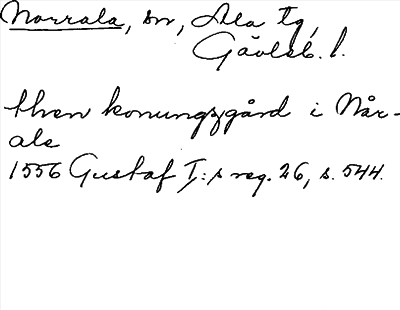 Norrala, sn, Ala tg,
Gävleb. l.
then konungzgård i Når-
ale
1556 Gustaf I:s reg. 26, s. 544.